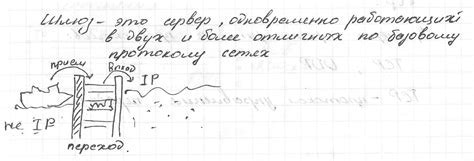 Шлюз - это сервер, одновременно работающий
в двух и более отличных по базовому
протоколу сетях
прием
выход
IP
не IP
переход